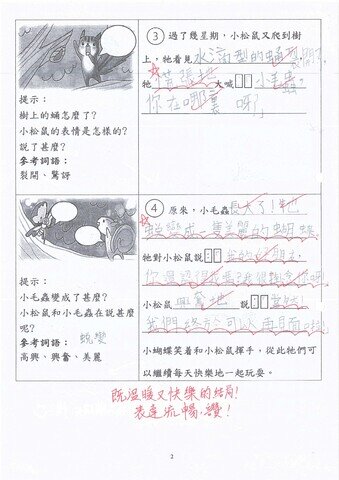 ③ 過了幾星期,小松鼠又爬到樹
上,牠看見水滴型的蛹裂開了。
牠慌張地大喊:「小毛蟲,
你在哪裏呀?」
提示:
樹上的蛹怎麼了?
小松鼠的表情是怎樣的?
說了甚麼?
參考詞語:
裂開、驚訝
④ 原來,小毛蟲長大了!牠
蛻變成一隻美麗的蝴蝶
牠對小松鼠說:「我的好朋友
你還認得我嗎?我很
小松鼠興奮地說:「
我們終於可以再見面
小蝴蝶笑着和小松鼠揮手,從此牠們可
以繼續每天快樂地一起玩耍。
提示:
小毛蟲變成了甚麼?
小松鼠和小毛蟲在說甚麼
呢?
參考詞語: 蛻變
高興、興奮、美麗
既溫暖又快樂的結局!
表達流暢,讚!
2